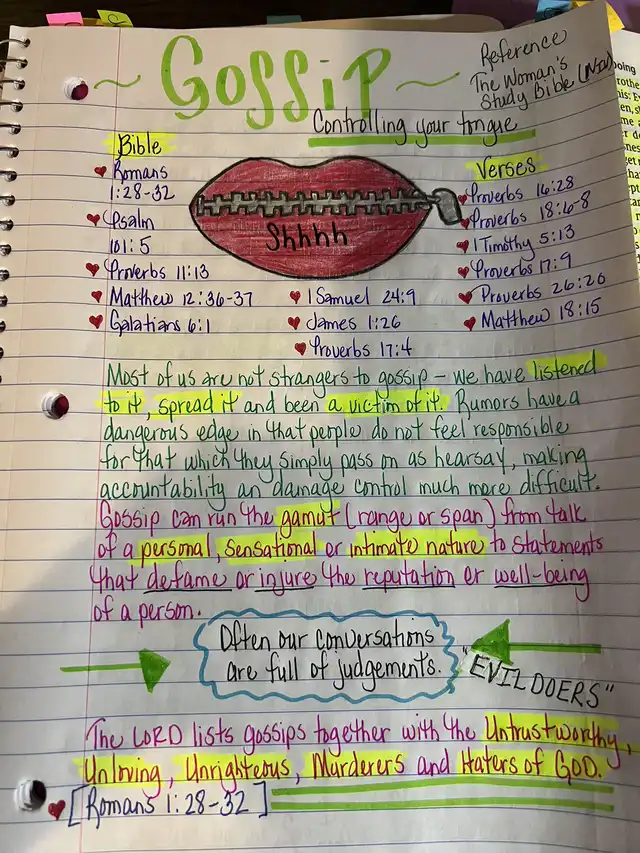 ~ Gossip ~
Reference
The Woman's
Study Bible (NIV)
Controlling your tongue
Bible
Romans
1:28-32
Psalm
101:5
Proverbs 11:13
Matthew 12:36-37
Galatians 6:1
Shhhh
1 Samuel 24:9
James 1:26
Proverbs 17:4
Verses
Proverbs 16:28
Proverbs 18:6-8
1 Timothy 5:13
Proverbs 17:9
Proverbs 26:20
Matthew 18:15
Most of us are not strangers to gossip - we have listened
to it, spread it and been a victim of it. Rumors have a
dangerous edge in that people do not feel responsible
for that which they simply pass on as hearsay, making
accountability an damage control much more difficult.
Gossip can run the gamut (range or span) from talk
of a personal, sensational or intimate nature to statements
that defame or injure the reputation or well-being
of a person.
Often our conversations
are full of judgements.
"EVILDOERS"
The LORD lists gossips together with the Untrustworthy,
Unloving, Unrighteous, Murderers and Haters of GOD.
[Romans 1:28-32]